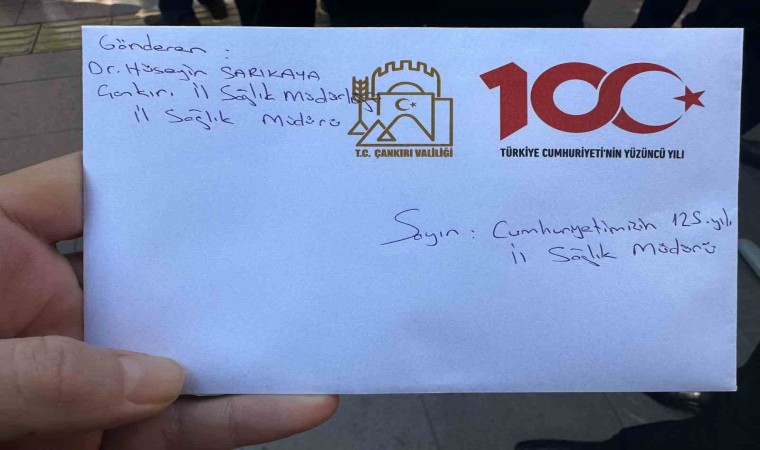 Gönderen :
Dr. Hüseyin SARIKAYA
Çankırı İl Sağlık Müdürlüğü
İl Sağlık Müdürü
T.C. ÇANKIRI VALİLİĞİ
100
TÜRKİYE CUMHURİYETİ'NİN YÜZÜNCÜ YILI
Sayın : Cumhuriyetimizin 125. yılı
İl Sağlık Müdürü